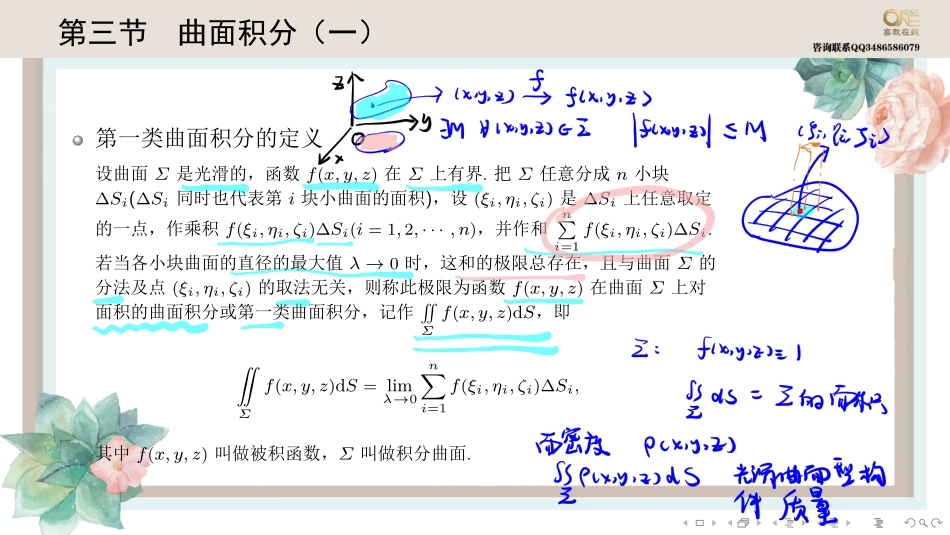 第三节 曲面积分（一）
ONE
高教在线
咨询联系QQ3486586079
z
(x,y,z) f→ f(x,y,z)
y
O
x
∃M ∀(x,y,z)∈Σ |f(x,y,z)| ≤ M
(ξi, ηi, ζi)
第一类曲面积分的定义
设曲面 Σ 是光滑的，函数 f(x, y, z) 在 Σ 上有界. 把 Σ 任意分成 n 小块
ΔSi(ΔSi 同时也代表第 i 块小曲面的面积)，设 (ξi, ηi, ζi) 是 ΔSi 上任意取定
的一点，作乘积 f(ξi, ηi, ζi)ΔSi(i = 1, 2, ⋯ , n)，并作和 ∑_{i=1}^{n} f(ξi, ηi, ζi)ΔSi.
若当各小块曲面的直径的最大值 λ → 0 时，这和的极限总存在，且与曲面 Σ 的
分法及点 (ξi, ηi, ζi) 的取法无关，则称此极限为函数 f(x, y, z) 在曲面 Σ 上对
面积的曲面积分或第一类曲面积分，记作 ∬_Σ f(x, y, z)dS，即
Σ: f(x,y,z)=1
∬_Σ f(x, y, z)dS = lim_{λ→0} ∑_{i=1}^{n} f(ξi, ηi, ζi)ΔSi,
∬_Σ dS = Σ的面积
面密度 ρ(x,y,z)
其中 f(x, y, z) 叫做被积函数，Σ 叫做积分曲面.
∬_Σ ρ(x,y,z)dS 光滑曲面型构
件 质量